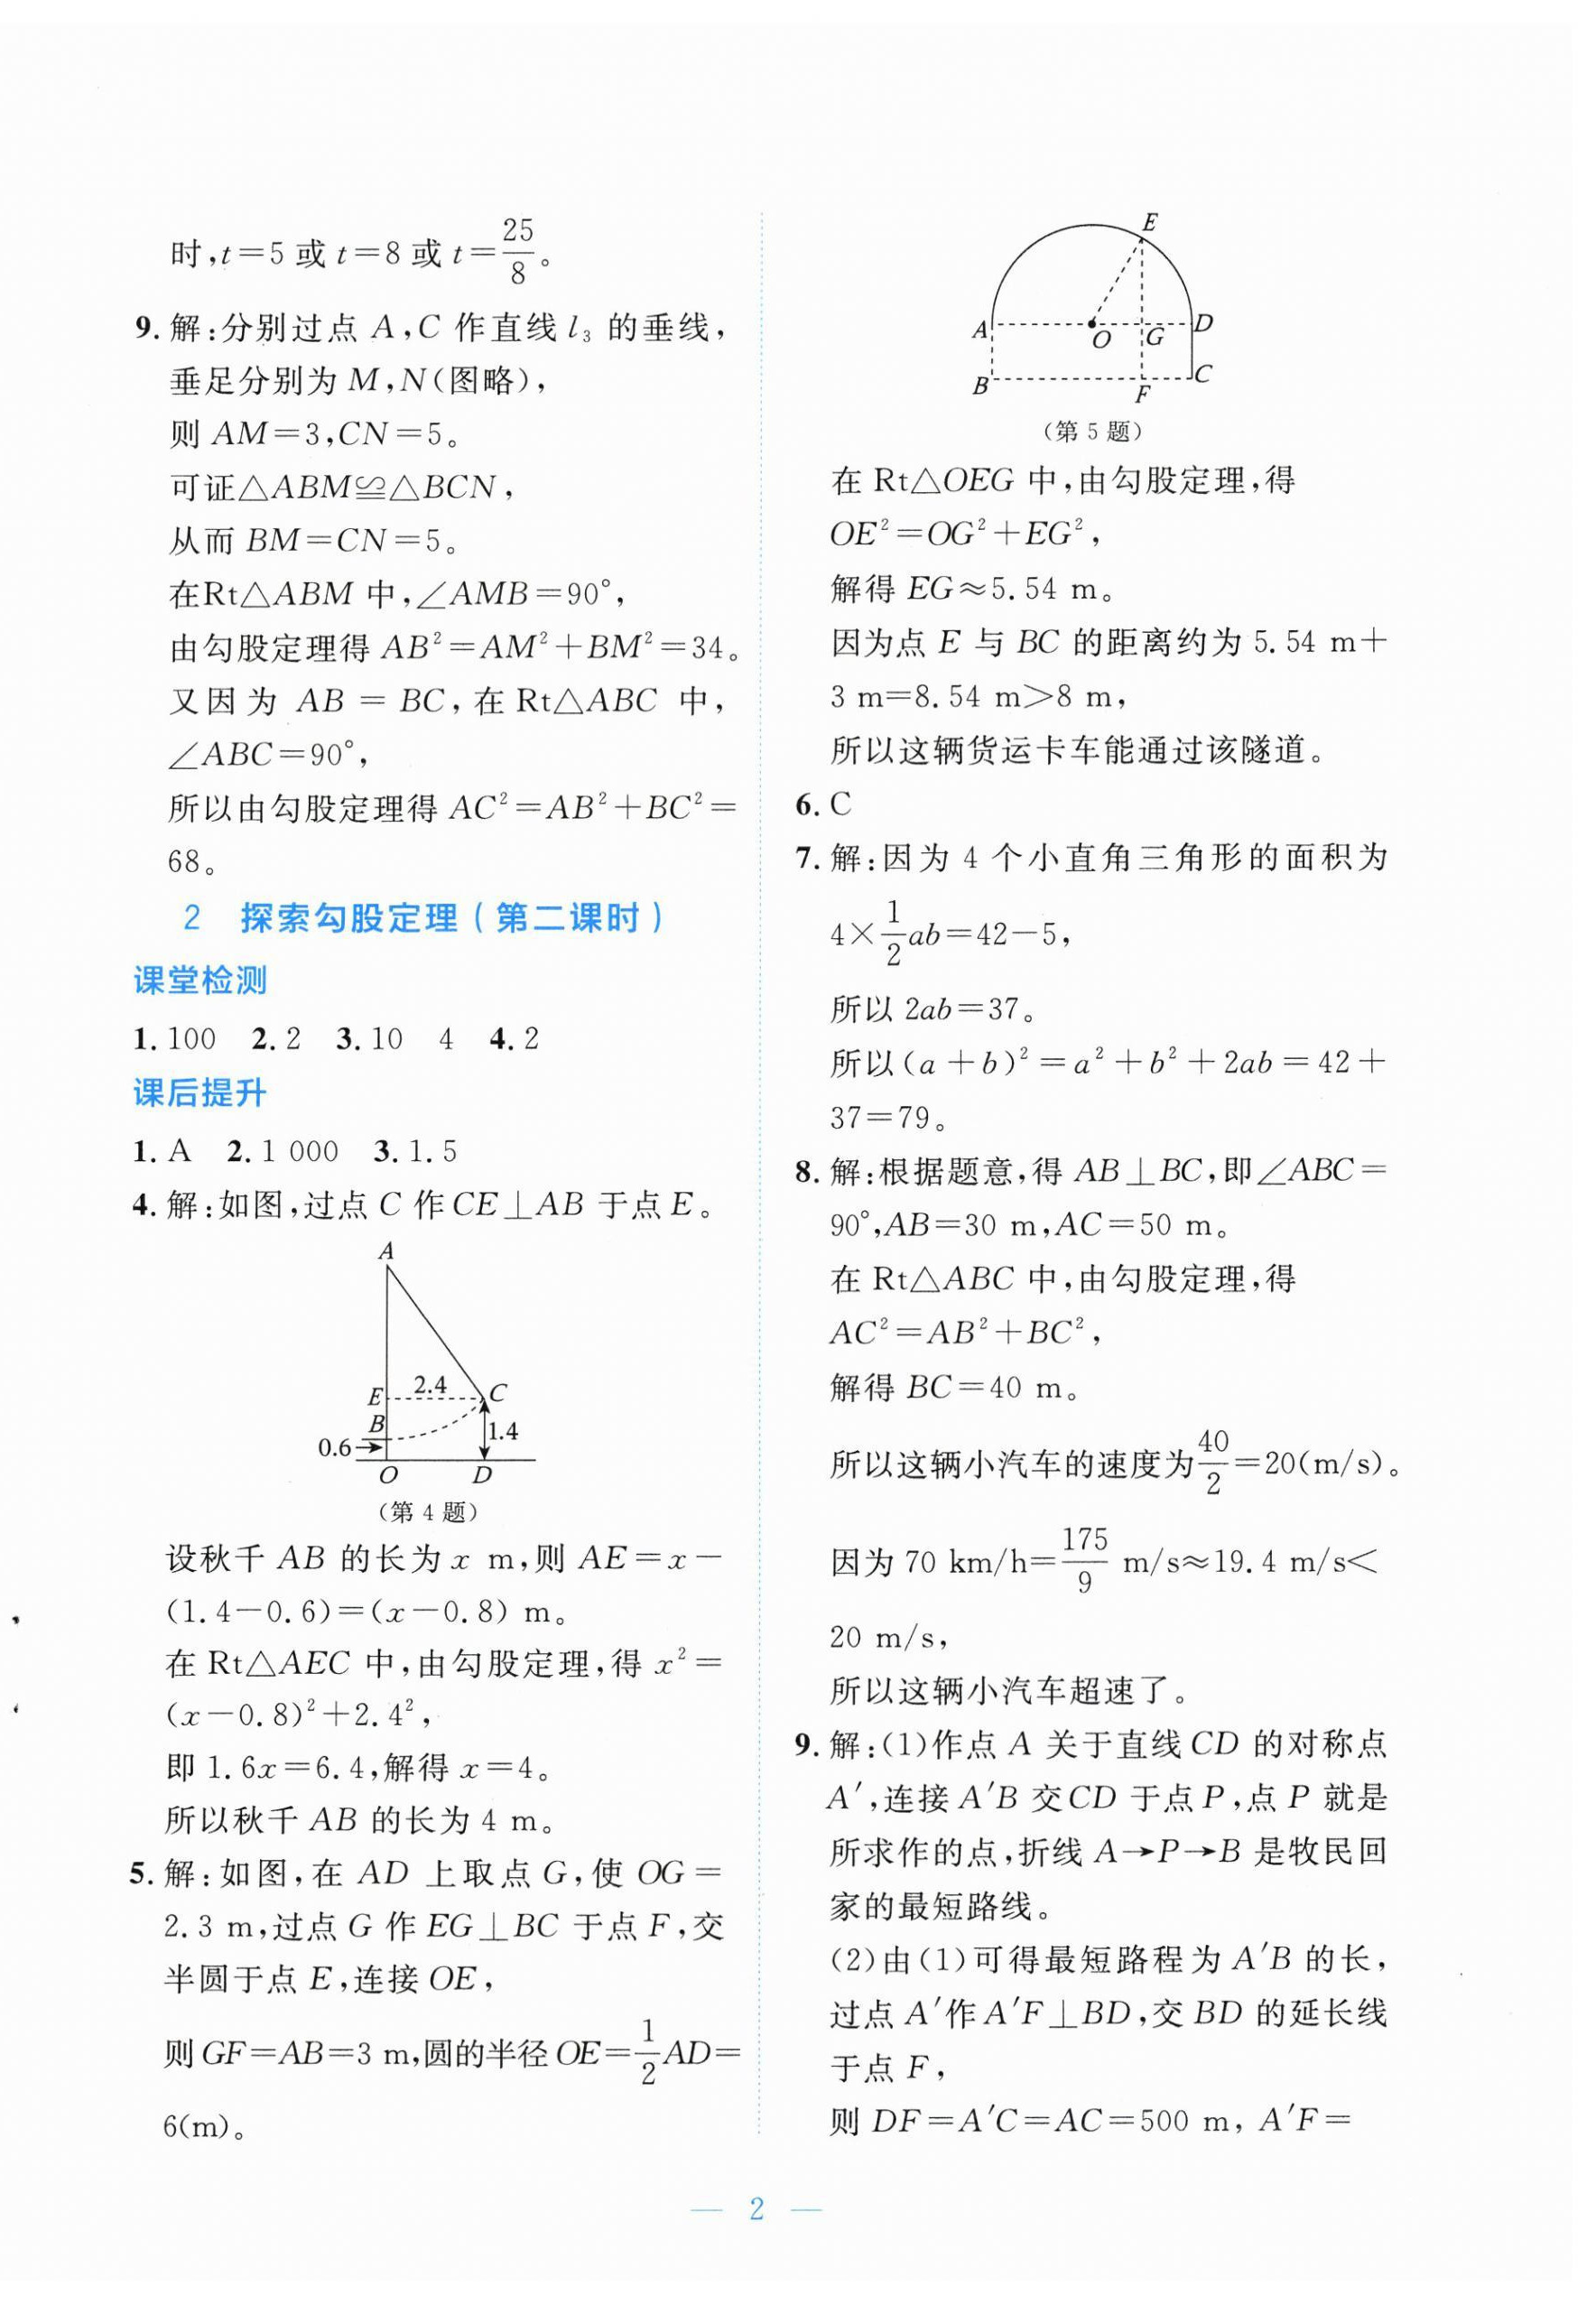 时,t=5 或 t=8 或 t=25/8。
9. 解:分别过点 A,C 作直线 l₃ 的垂线,
垂足分别为 M,N(图略),
则 AM=3,CN=5。
可证△ABM≌△BCN,
从而 BM=CN=5。
在Rt△ABM 中,∠AMB=90°,
由勾股定理得 AB²=AM²+BM²=34。
又因为 AB = BC,在 Rt△ABC 中,
∠ABC=90°,
所以由勾股定理得 AC²=AB²+BC²=
68。
2 探索勾股定理(第二课时)
课堂检测
1. 100 2. 2 3. 10 4 4. 2
课后提升
1. A 2. 1 000 3. 1.5
4. 解:如图,过点 C 作 CE⊥AB 于点 E。
A
E 2.4 C
B
0.6 1.4
O D
(第 4 题)
设秋千 AB 的长为 x m,则 AE=x-
(1.4-0.6)=(x-0.8) m。
在 Rt△AEC 中,由勾股定理,得 x²=
(x-0.8)²+2.4²,
即 1.6x=6.4,解得 x=4。
所以秋千 AB 的长为 4 m。
5. 解:如图,在 AD 上取点 G,使 OG=
2.3 m,过点 G 作 EG⊥BC 于点 F,交
半圆于点 E,连接 OE,
则 GF=AB=3 m,圆的半径 OE=1/2AD=
6(m)。
E
A O G D
B F C
(第 5 题)
在 Rt△OEG 中,由勾股定理,得
OE²=OG²+EG²,
解得 EG≈5.54 m。
因为点 E 与 BC 的距离约为 5.54 m+
3 m=8.54 m>8 m,
所以这辆货运卡车能通过该隧道。
6. C
7. 解:因为 4 个小直角三角形的面积为
4×1/2ab=42-5,
所以 2ab=37。
所以(a+b)²=a²+b²+2ab=42+
37=79。
8. 解:根据题意,得 AB⊥BC,即∠ABC=
90°,AB=30 m,AC=50 m。
在 Rt△ABC 中,由勾股定理,得
AC²=AB²+BC²,
解得 BC=40 m。
所以这辆小汽车的速度为40/2=20(m/s)。
因为 70 km/h=175/9 m/s≈19.4 m/s<
20 m/s,
所以这辆小汽车超速了。
9. 解:(1)作点 A 关于直线 CD 的对称点
A′,连接 A′B 交CD 于点 P,点 P 就是
所求作的点,折线 A→P→B 是牧民回
家的最短路线。
(2)由(1)可得最短路程为 A′B 的长,
过点 A′作 A′F⊥BD,交 BD 的延长线
于点 F,
则 DF=A′C=AC=500 m, A′F=
— 2 —